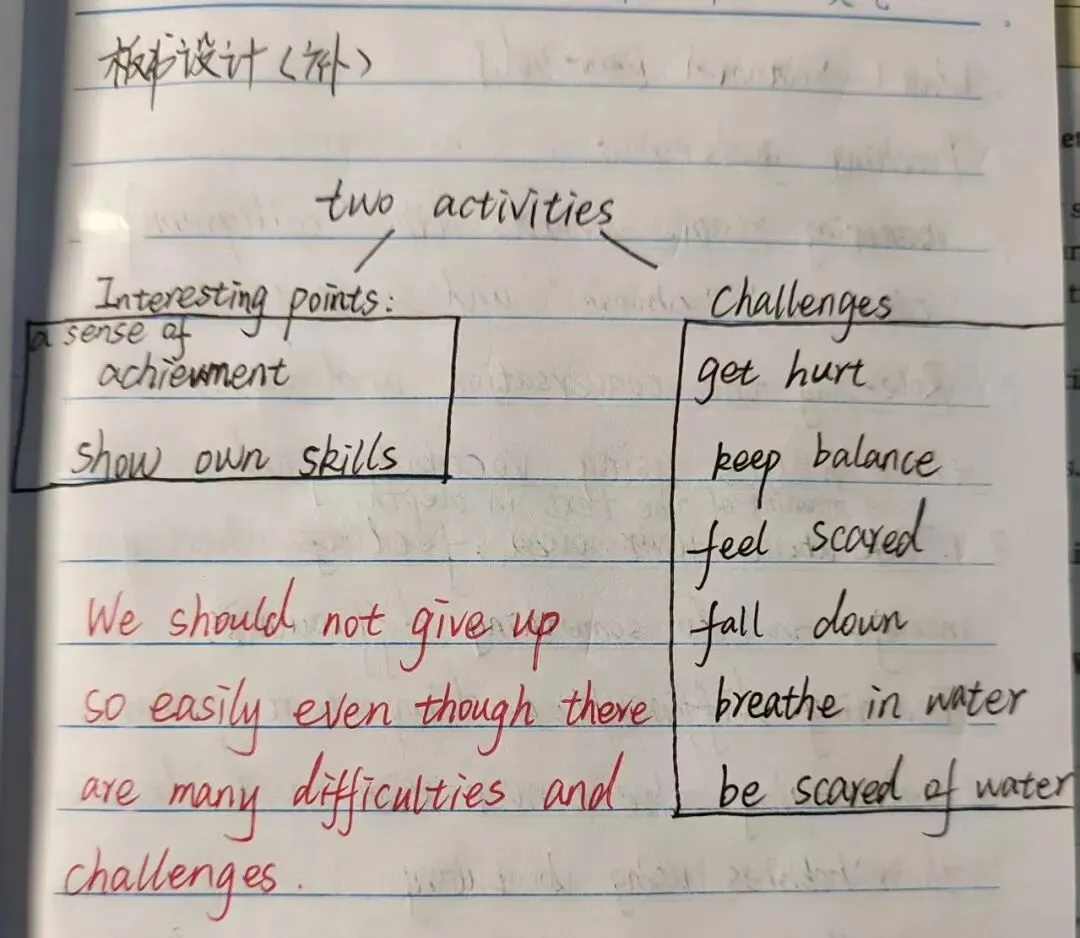 板书设计（补）
two activities
Interesting points:
a sense of
achievment
show own skills
Challenges
get hurt
keep balance
feel scared
fall down
breathe in water
be scared of water
We should not give up
so easily even though there
are many difficulties and
challenges.